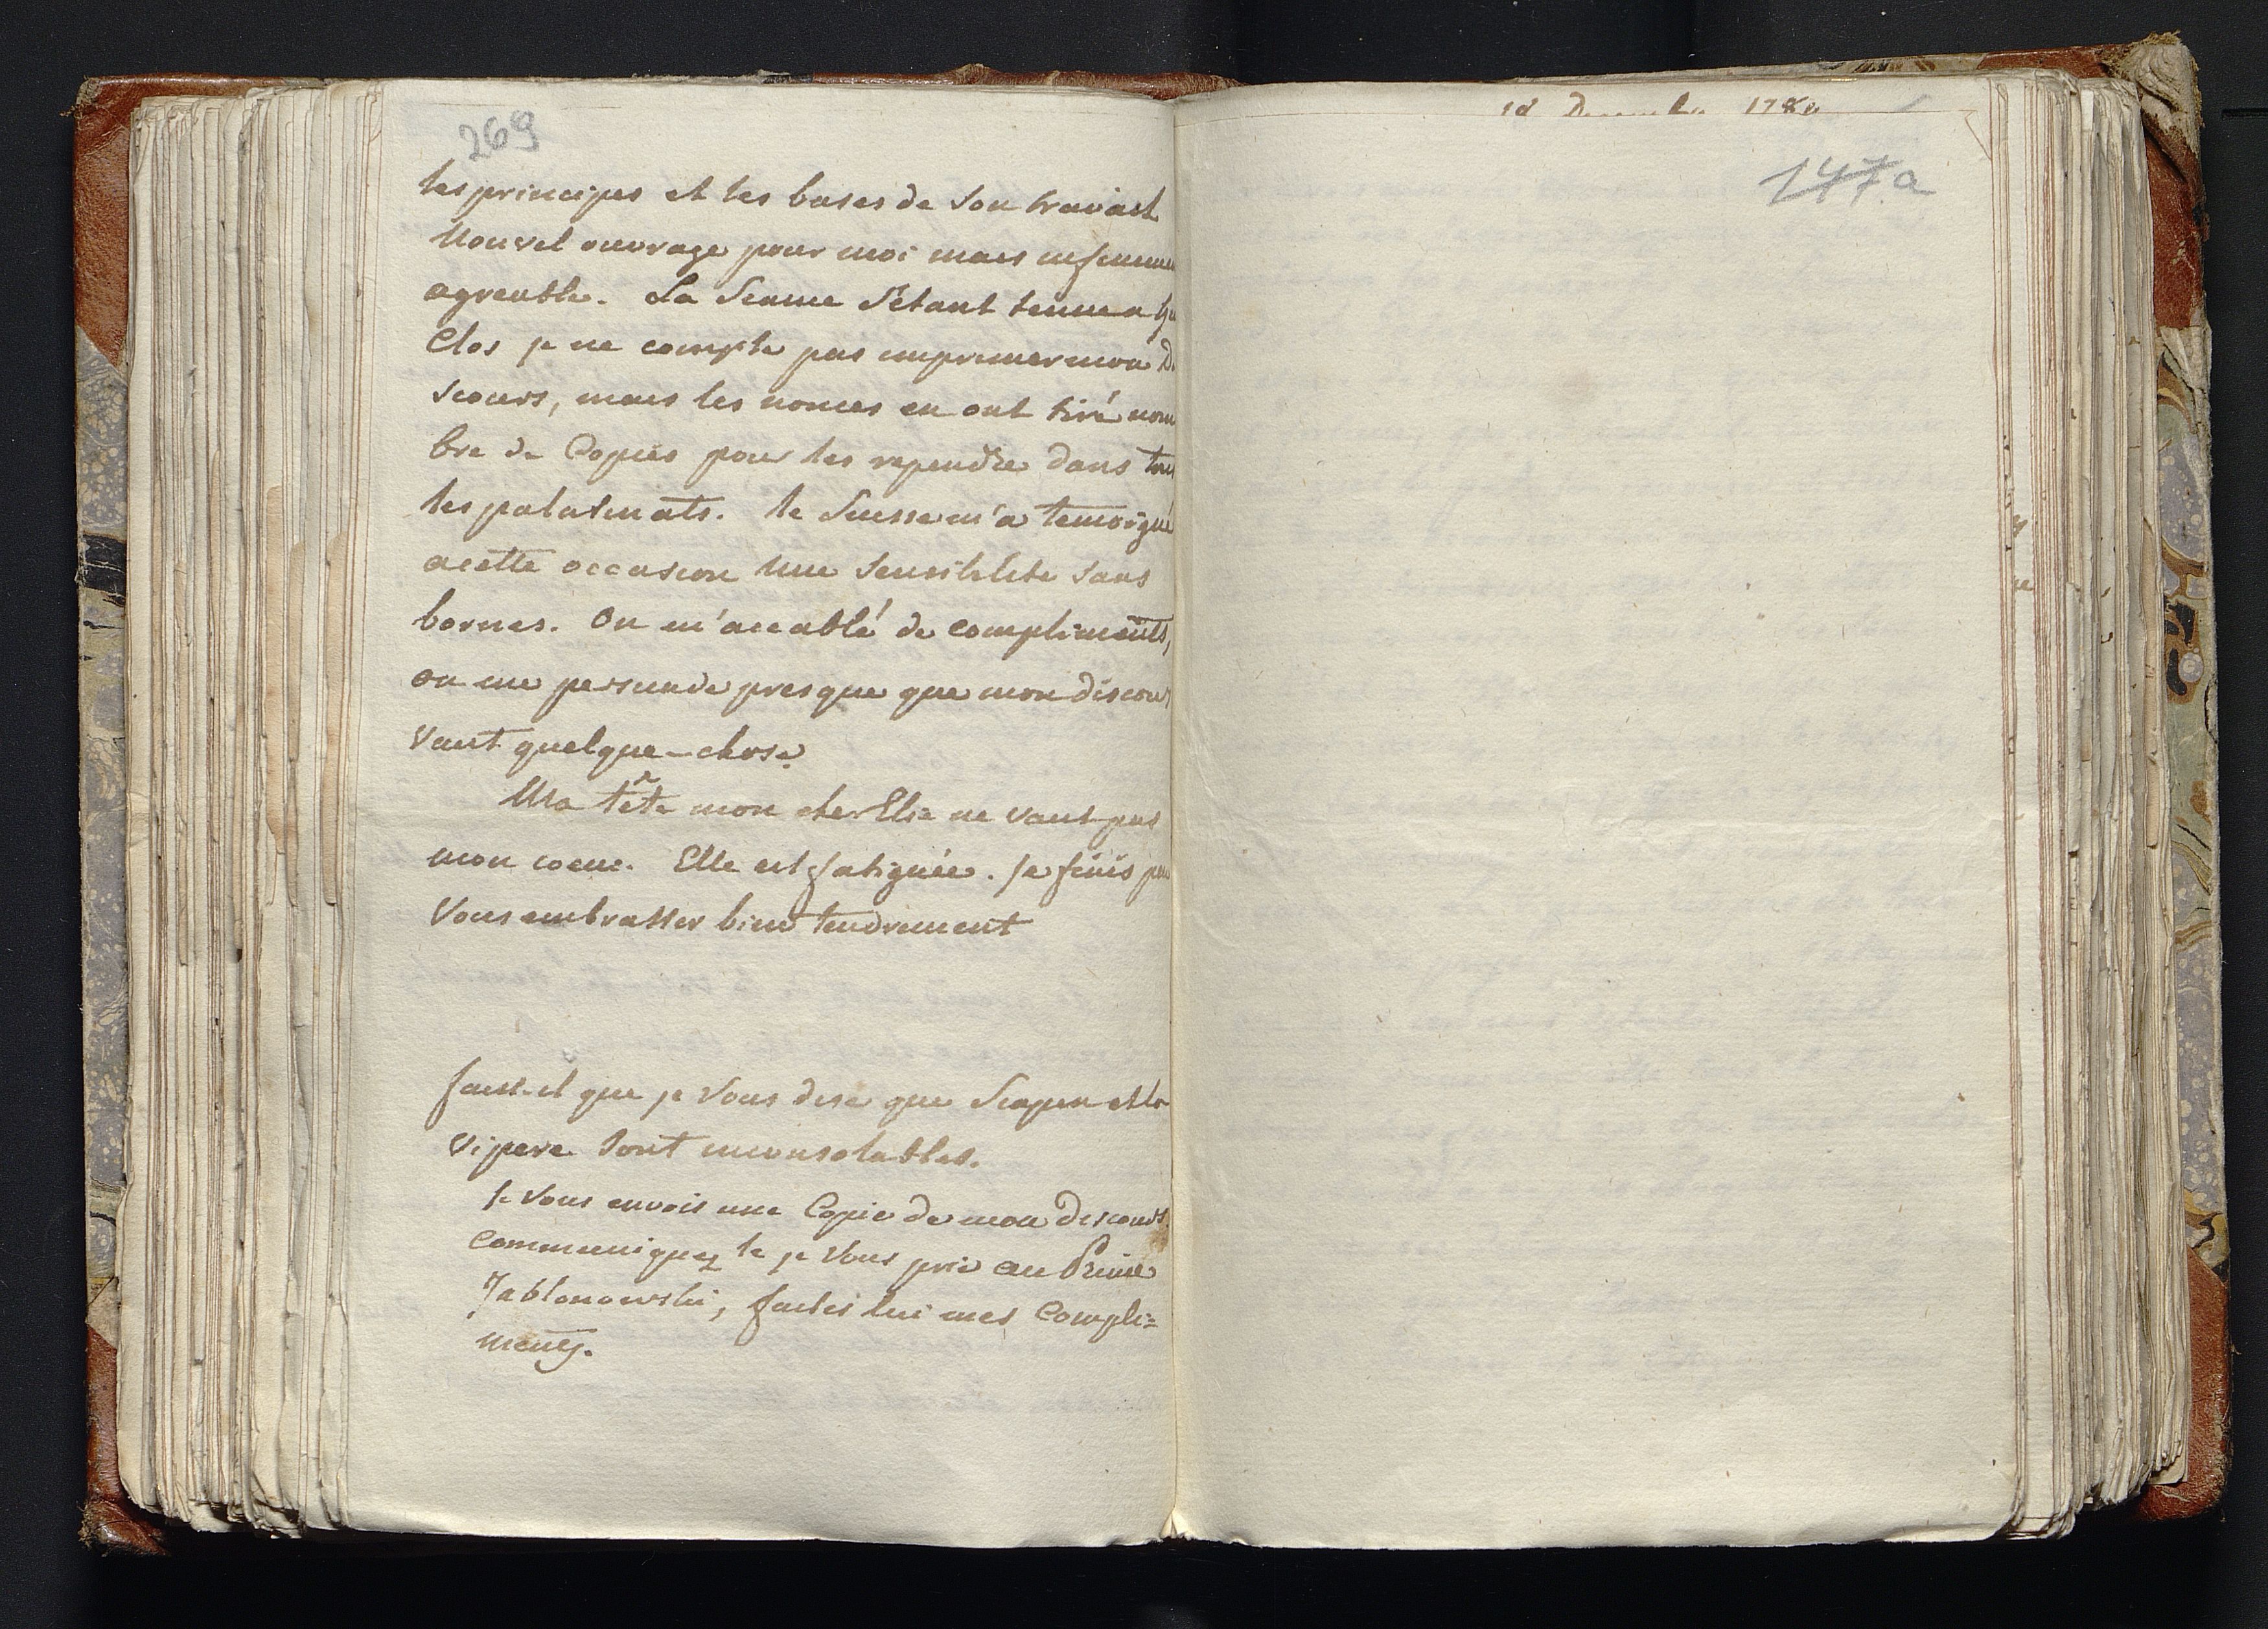 269
les principes et les bases de son travail
Nouvel ouvrage pour moi mais infinimen
agreable. La Seance s'etant tenue a Hu
Clos je ne compte pas imprimer mon Di
scours, mais les nonces en ont tiré nom
bre de Copies pour les rependre dans tous
les palatinats. le Suesse m'a temoigné
acette occasion Une Sensibilite sans
bornes. On m'accablé de compliments,
on me persuade presque que mon discour
Vaut quelque-chose.
Ma tête mon cher Elie ne vaut pas
mon coeur. Elle est fatiguée. Je finis pour
Vous embrasser bien tendrement
faut-il que je Vous dise que Scapin et la
Vipere Sont inconsolables.
Je Vous envois une Copie de mon discours.
Communiquez le je Vous prie au Prince
Jablonowski, faites lui mes Compli=
ments.
18 Decembre 1788
147a